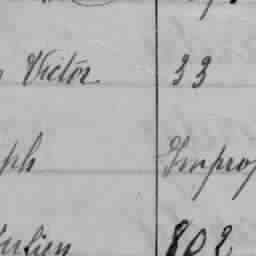 Victor 33
ph Improp
ulien 802